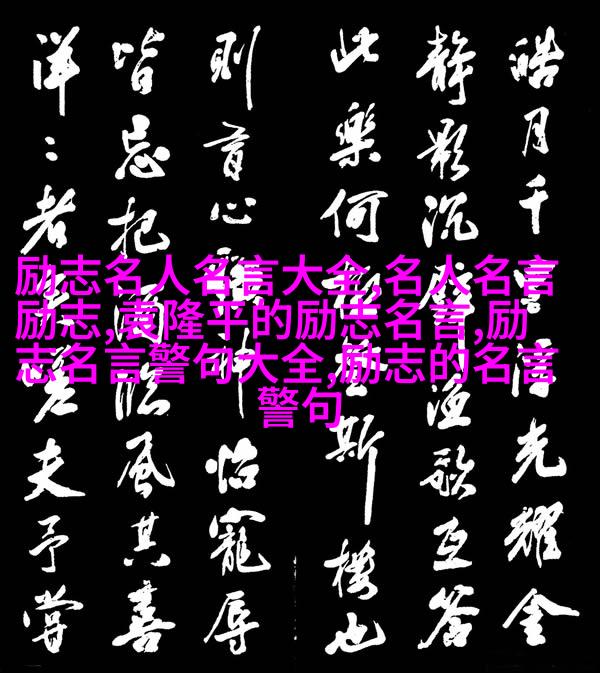 皓月千里浮光耀金
静影沉璧渔歌互答
此樂何極登斯樓也
則有心曠神怡寵辱
皆忘把酒臨風其喜
洋〻者矣嗟夫予嘗
励志名人名言大全,名人名言
励志,袁隆平的励志名言,励
志名言警句大全,励志的名言
警句